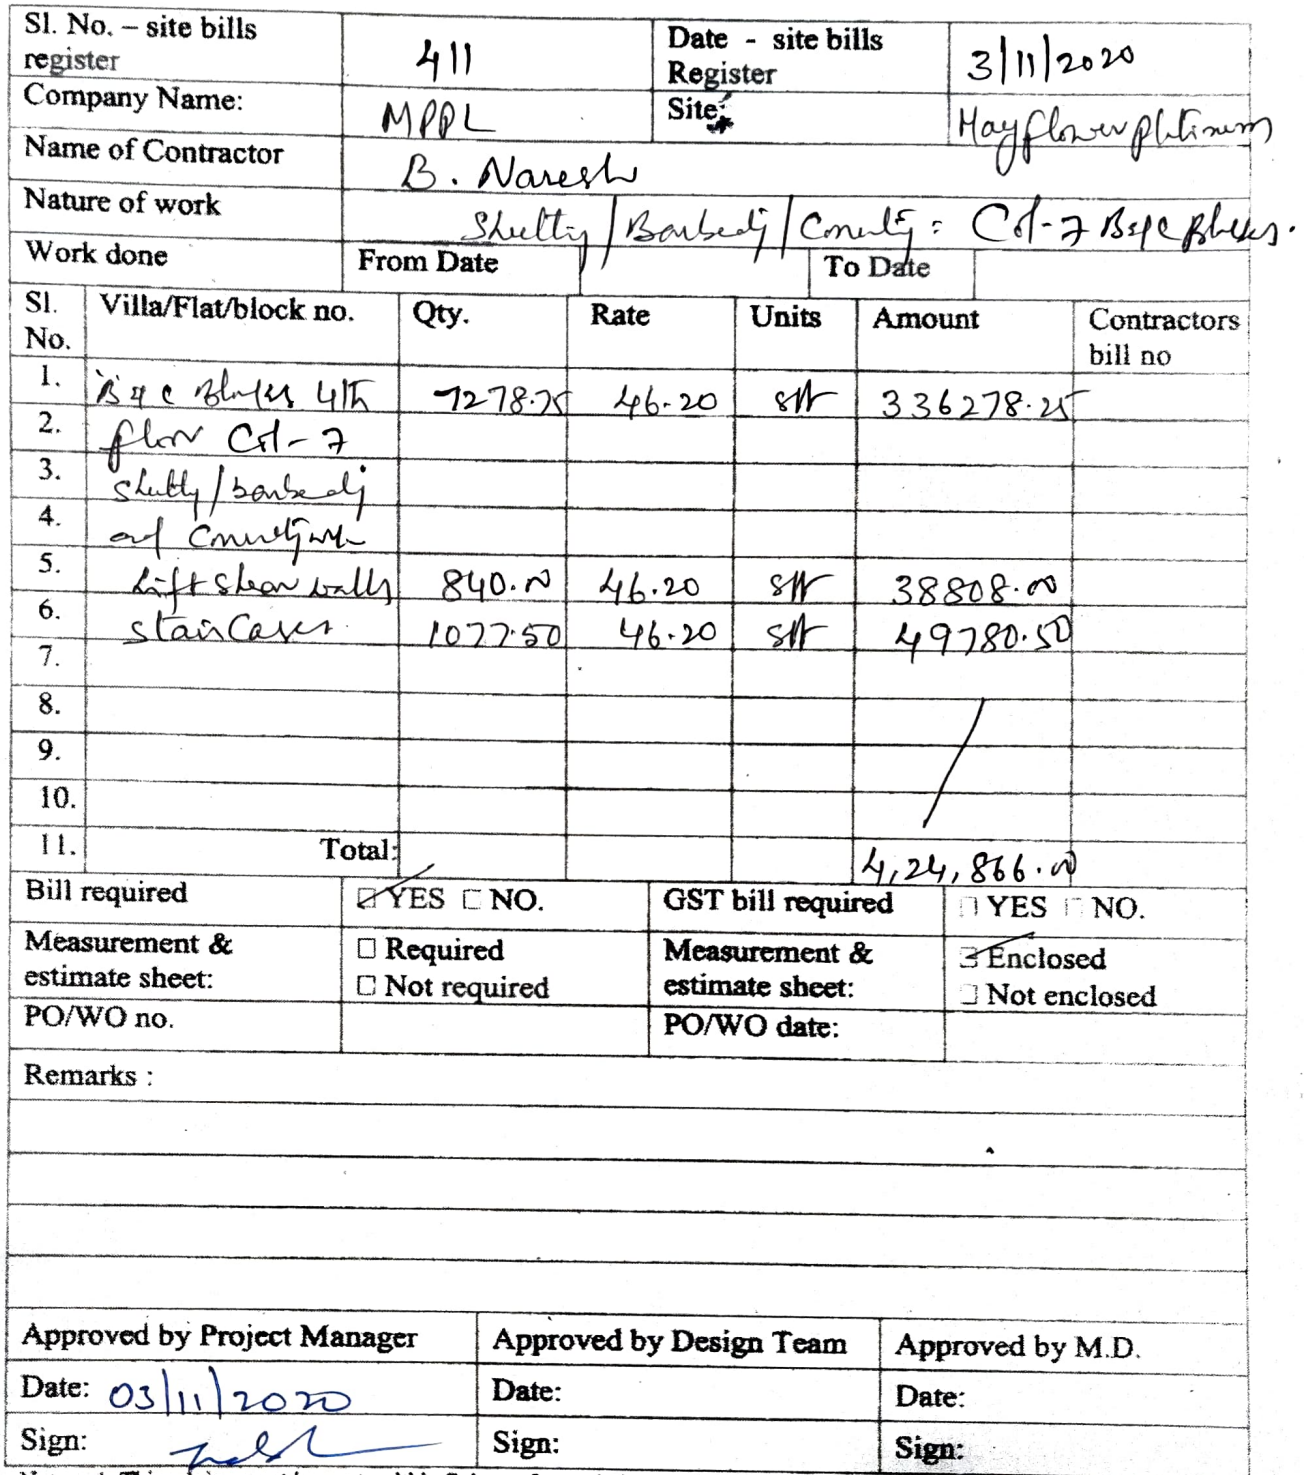 Sl. No. – site bills register 411 Date - site bills Register 3/11/2020
Company Name: MPPL Site: Mayflower platinum
Name of Contractor B. Naresh
Nature of work Col-7 B&C Blocks.
Work done From Date To Date
Sl. No. Villa/Flat/block no. Qty. Rate Units Amount Contractors bill no
1. B & C Blocks 4th 7278.75 46.20 sft 336278.25
2. floor Col-7
3.
4. and
5. Lift shear walls 840.00 46.20 sft 38808.00
6. stairCases 1077.50 46.20 sft 49780.50
7.
8.
9.
10.
11. Total: 4,24,866.00
Bill required YES NO. GST bill required YES NO.
Measurement & estimate sheet: Required Not required Measurement & estimate sheet: Enclosed Not enclosed
PO/WO no. PO/WO date:
Remarks :
Approved by Project Manager Approved by Design Team Approved by M.D.
Date: 03/11/2020 Date: Date:
Sign: Sign: Sign: